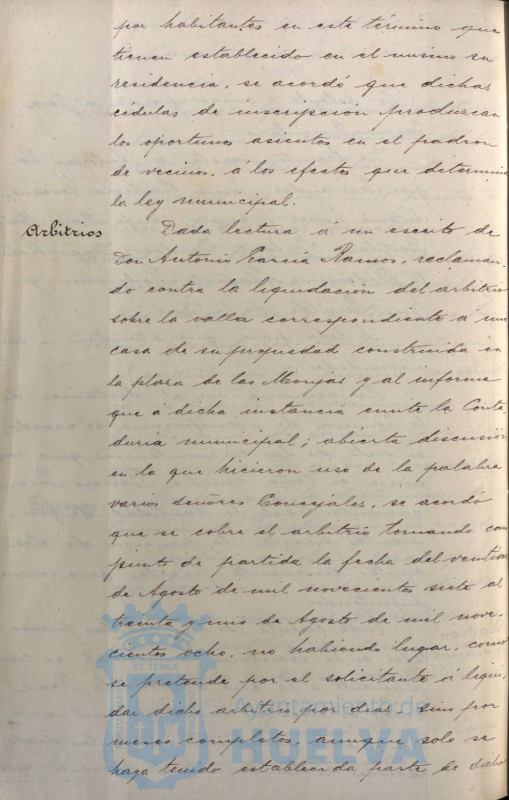 por habitantes en este término que
tienen establecido en el mismo su
residencia, se acordó que dichas
cédulas de inscripción produzcan
los oportunos asientos en el padron
de vecinos, á los efectos que determina
la ley municipal.
Arbitrios
Dada lectura á un escrito de
Don Antonio García Ramos, reclaman-
do contra la liquidación del arbitrio
sobre la valla correspondiente á una
casa de su propiedad construida en
la plaza de las Monjas y al informe
que á dicha instancia emite la Conta-
duria municipal; abierta discusión
en la que hicieron uso de la palabra
varios señores Concejales, se acordó
que se cobre el arbitrio tomando como
punto de partida la fecha del
de Agosto de mil novecientos siete al
treinta y uno de Agosto de mil nove-
cientos ocho, no habiendo lugar, como
se pretende por el solicitante á liqui-
dar dicho arbitrio por dias, sino por
meses completos, aunque solo se
haya tenido establecida parte de dicho
Ayuntamiento de
HUELVA